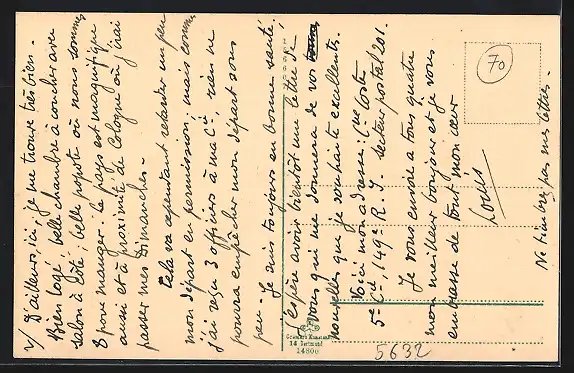 2/ D'ailleurs, ici, je me trouve très bien -
Bien logé, belle chambre à coucher avec
salon à côté, belle popote où nous sommes
8 pour manger. Le pays est magnifique
aussi et à proximité de Cologne où j'irai
passer mes dimanches -
Cela va cependant retarder un peu
mon départ en permission, mais comme
j'ai reçu 3 officiers à ma Cie, rien ne
pourra empêcher mon départ sous
peu - Je suis toujours en bonne santé.
J'espère avoir bientôt une lettre de
vous qui me donnera de vos
nouvelles que je souhaite excellentes.
Voici mon adresse: Cne Coste
5e Cie, 149e R.I. secteur postal 201.
Je vous envoie à tous quatre
mon meilleur bonjour et je vous
embrasse de tout mon cœur
Louis
Ne timbrez pas vos lettres -
70
14806
5632